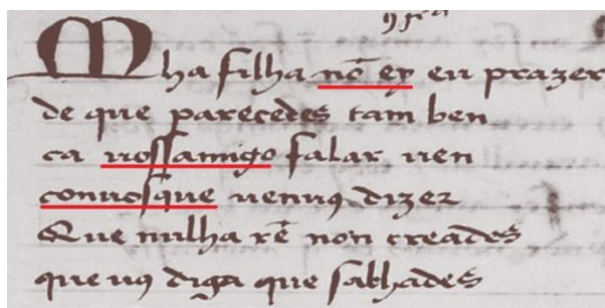 Mha filha nõ ey eu prazer
de que parecedes tam ben
ca uossamigo falar uen
conuosque uenuꝯ dizer
Que nulha rẽ non creades
que uꝯ diga que sabhades